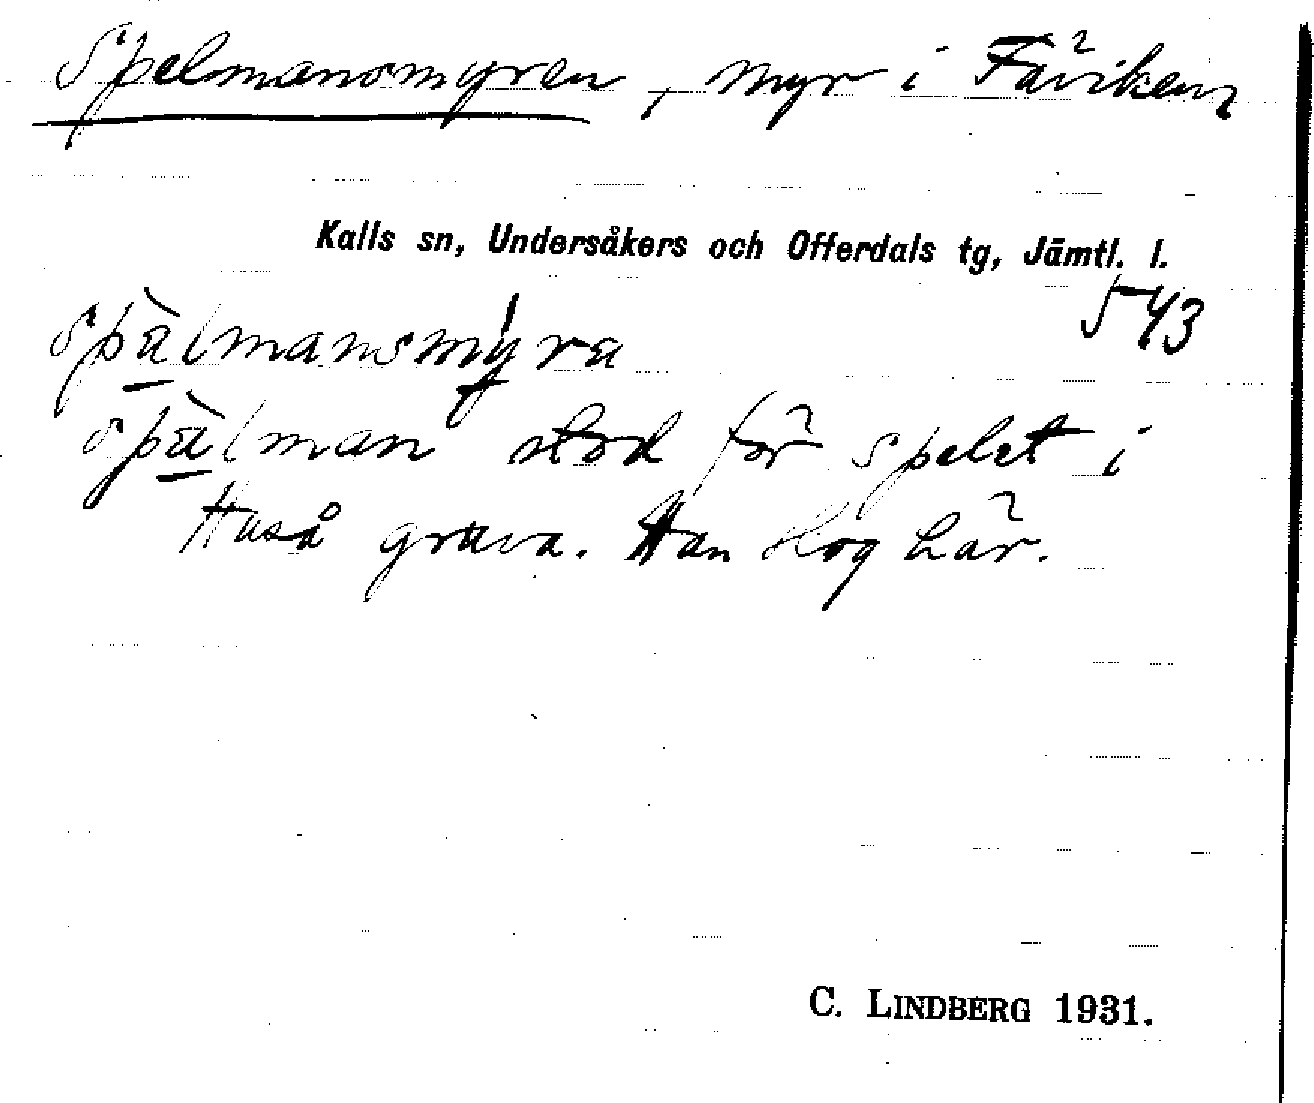 Spelmansmyren, myr i Fäviken
Kalls sn, Undersåkers och Offerdals tg, Jämtl. l.
543
spà̠lmansmýra
spà̠lman stod för spelet i
Huså gruva. Han slog här.
C. LINDBERG 1931.